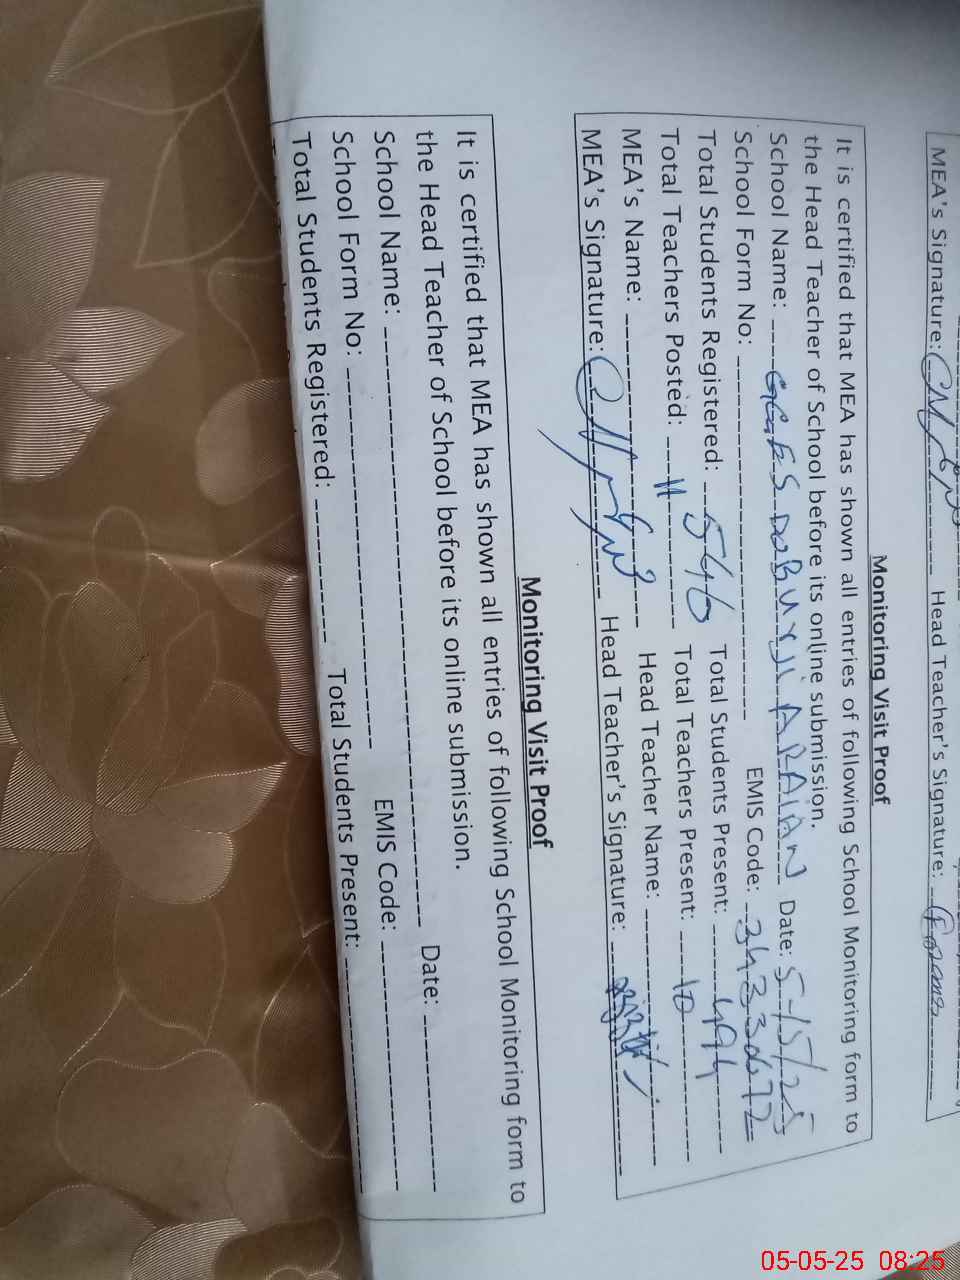 MEA's Signature: Head Teacher's Signature:
Monitoring Visit Proof
It is certified that MEA has shown all entries of following School Monitoring form to
the Head Teacher of School before its online submission.
School Name: ARAIAN Date: 5-/5/25
School Form No: EMIS Code:
Total Students Registered: 546 Total Students Present: 494
Total Teachers Posted: 11 Total Teachers Present: 10
MEA's Name: Head Teacher Name:
MEA's Signature: Head Teacher's Signature:
Monitoring Visit Proof
It is certified that MEA has shown all entries of following School Monitoring form to
the Head Teacher of School before its online submission.
School Name: Date:
School Form No: EMIS Code:
Total Students Registered: Total Students Present:
05-05-25 08:25